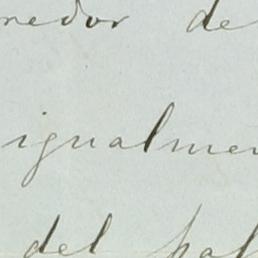 nedor de
igualmen
del pal